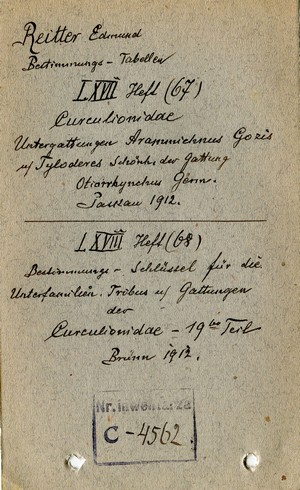 Reitter Edmund
Bestimmungs-Tabellen
LXVII Heft (67)
Curculionidae
Untergattungen Arammichnus Gozis
u/ Tyloderes Schönh. der Gattung
Otiorrhynchus Germ.
Paskau 1912.
LXVIII Heft (68)
Bestimmungs-Schlüssel für die
Unterfamilien. Tribus u/ Gattungen
der
Curculionidae - 19ter Teil
Brünn 1912.
Nr. inwentarza
C-4562